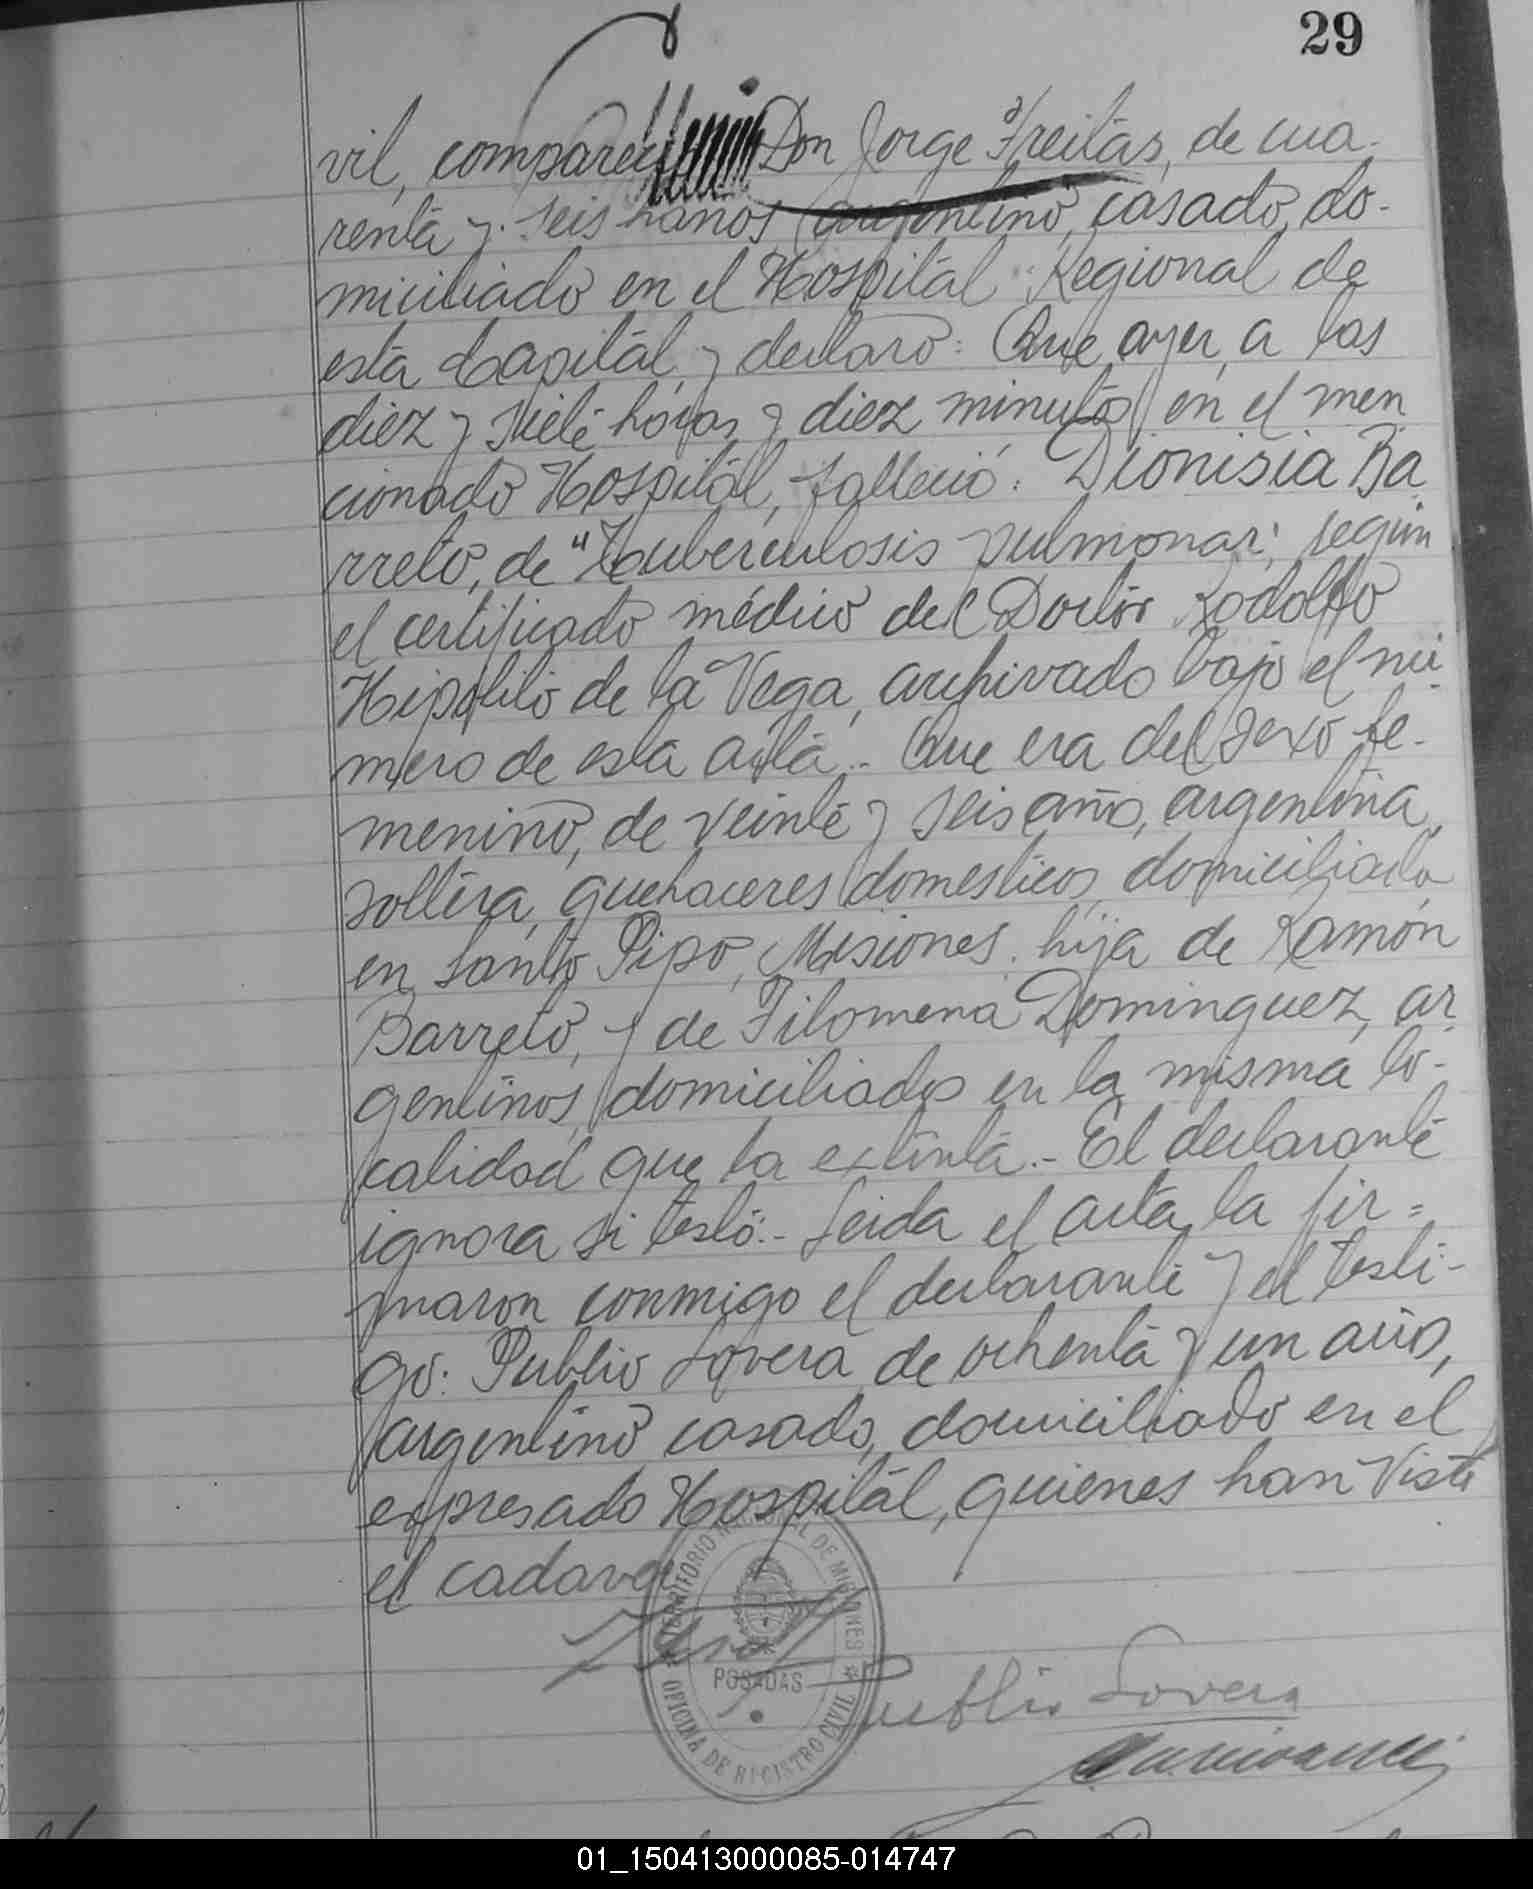 29
vil, compareció Don Jorge Freitas, de cua-
renta y seis hanos, argentino, casado, do-
miciliado en el Hospital Regional de
esta Capital, y declaró: Que ayer, a las
diez y siete horas y diez minutos en el men
cionado Hospital, falleció: Dionisia Ba
rreto, de "Touberculosis pulmonar", según
el certificado médico del Doctor Rodolfo
Hipolito de la Vega, archivado bajo el nú-
mero de esta acta.- Que era del sexo fe-
menino, de veinte y seis años, argentina,
soltera, quehaceres domesticos, domiciliada
en Santo Pipo, Misiones. hija de Ramón
Barreto, y de Filomena Dominguez, ar
gentinos, domiciliados en la misma lo-
calidad que la extinta.- El declarante
ignora si testó.- Leida el acta, la fir=
maron conmigo el declarante y el testi-
go: Publio Lovera de ochenta y un años,
argentino casado, domiciliado en el
expresado Hospital, quienes han visto
el cadaver
TERRITORIO NACIONAL DE MISIONES
POSADAS
OFICINA DE REGISTRO CIVIL
Publio Lovera
01_150413000085-014747